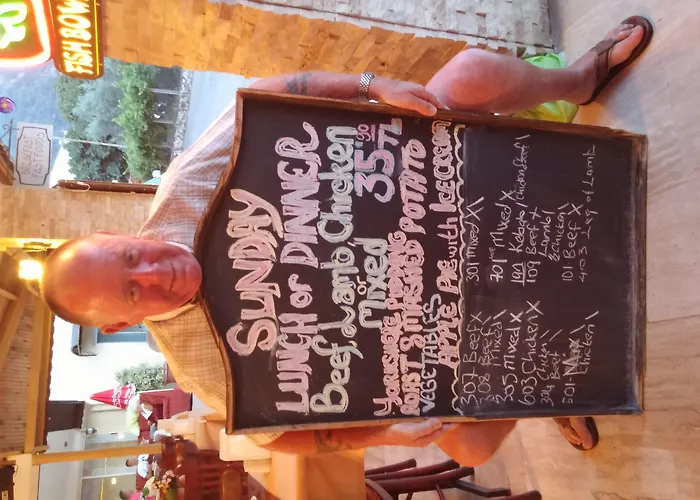 FISH BOW
SUNDAY
LUNCH or DINNER
Beef Lamb Chicken
or
Mixed 35.50 TL
YORKSHIRE PUDDING
ROAST & MASHED POTATO
VEGETABLES
APPLE PIE with ICE CREAM
307 Beef X
308 Beef
Mixed \
305 Mixed X
603 Chicken X
Chicken \
Beef \
501
Chicken \
301 Mixed X \
701 Mixed X
109 Beef X
Lamb \
& Chicken
101 Beef X
403 Leg of Lamb